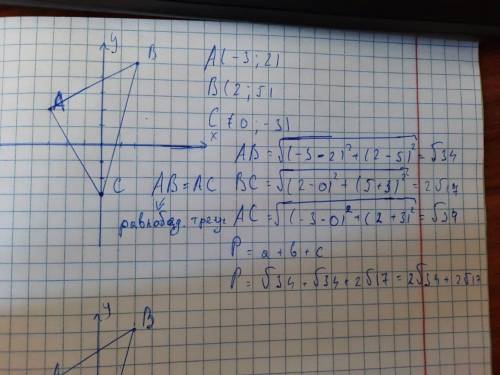 y
B
A
x
C
A(-3;2)
B(2;5)
C(0;-3)
AB=√(-3-2)²+(2-5)²=√34
AB=AC
BC=√(2-0)²+(5+3)²=2√17
равнобед. треуг
AC=√(-3-0)²+(2+3)²=√34
P=a+b+c
P=√34+√34+2√17=2√34+2√17
y
B
A